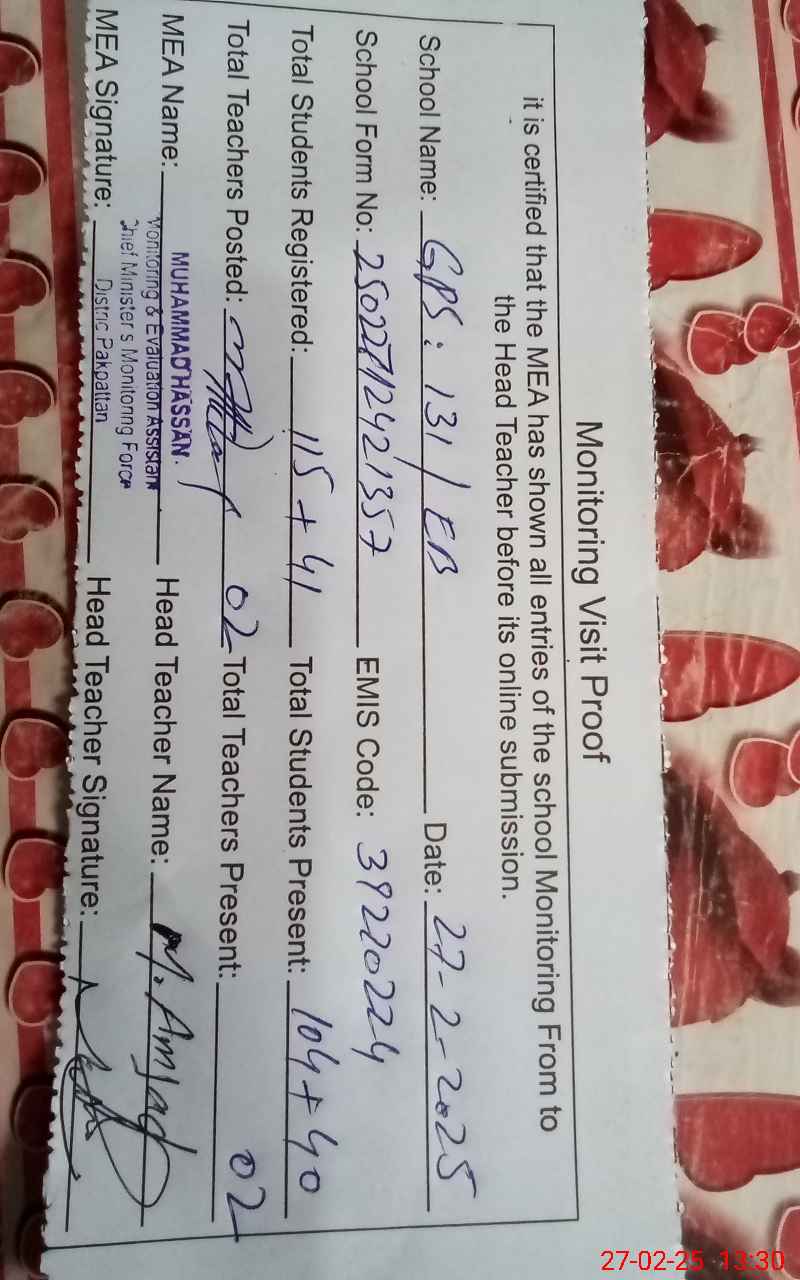 Monitoring Visit Proof
it is certified that the MEA has shown all entries of the school Monitoring From to
the Head Teacher before its online submission.
School Name: GPS: 131/EB Date: 27-2-2025
School Form No: 25022712421357 EMIS Code: 39220224
Total Students Registered: 115+41 Total Students Present: 104+40
Total Teachers Posted: 02 Total Teachers Present: 02
MEA Name: MUHAMMAD HASSAN. Head Teacher Name: M. Amjad
Monitoring & Evaluation Assistant
Chief Minister's Monitoring Force
MEA Signature: District Pakpattan Head Teacher Signature:
27-02-25 13:30